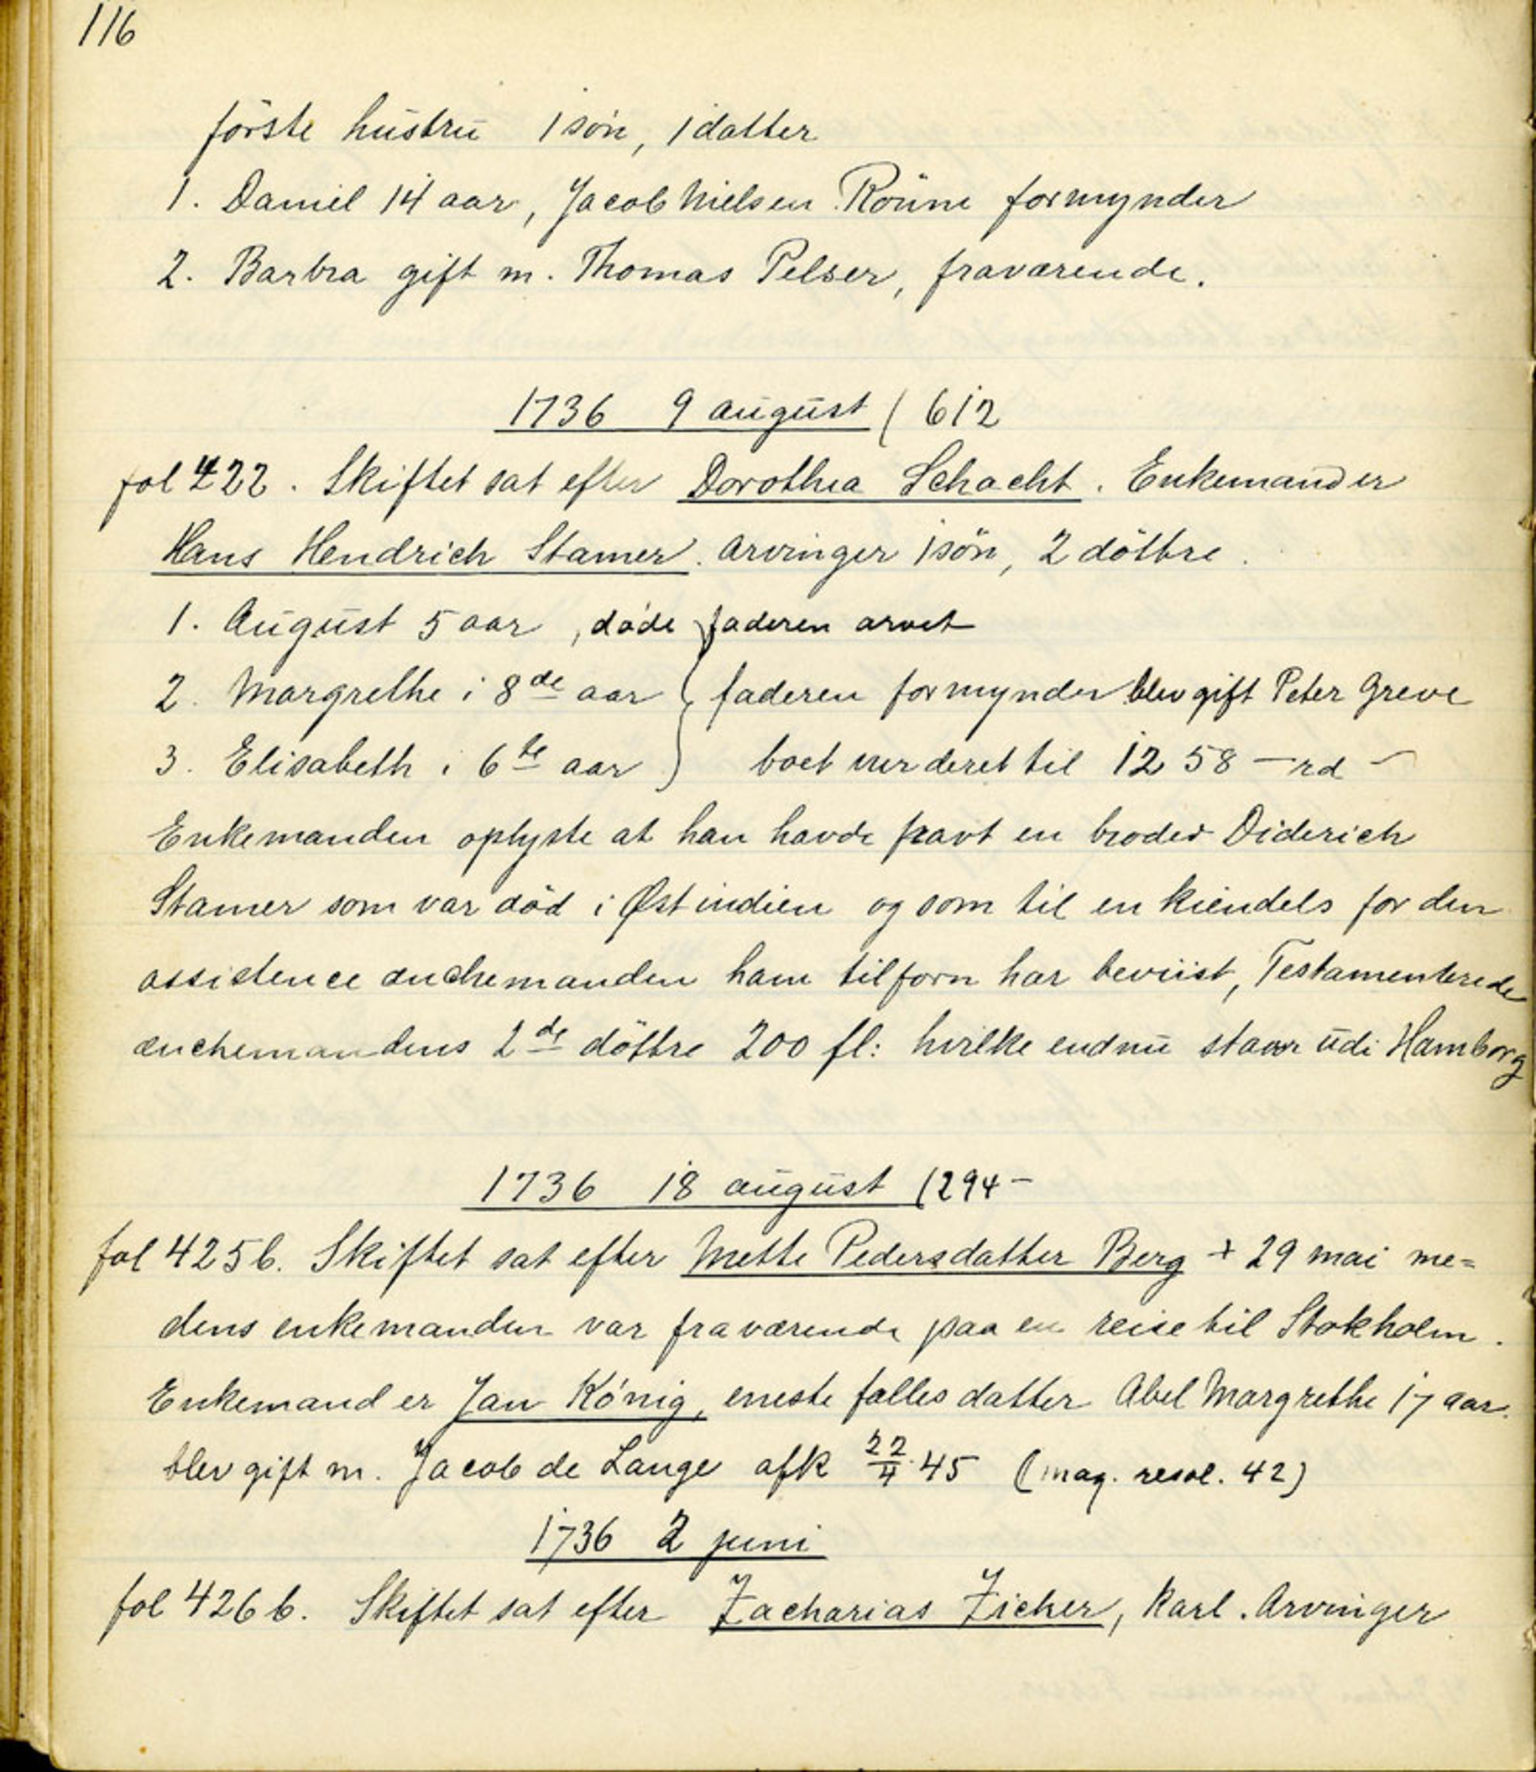 116
förste hustru 1 sön, 1 datter
1. Daniel 14 aar, Jacob Nielsen Röüne formynder
2. Barbra gift m. Thomas Pelser, fraværende.
1736 9 august ( 612
fol 422. Skiftet sat efter Dorothea Schacht. Enkemand er
Hans Hendrich Stamer. Arvinger 1 sön, 2 döttre.
1. August 5 aar, döde faderen arvet
2. Margrethe i 8de aar } faderen formynder blev gift Peter Greve
3. Elisabeth i 6te aar } boet vurderet til 1258 — rd —
Enkemanden oplyste at han havde havt en broder Diderich
Stamer som var död i Østindien og som til en kiendels for den
assistence enchemanden ham tilforn har beviist, Testamenterede
enchemandens 2de döttre 200 fl: hvilke endnu staar udi Hamborg
1736 18 august (294 —
fol 425 b. Skiftet sat efter Mette Pedersdatter Berg + 29 mai me=
dens enkemanden var fraværende paa en reise til Stokholm.
Enkemand er Jan König, eneste fælles datter Abel Margrethe 17 aar.
blev gift m. Jacob de Lange afk 22/4 45 (mag. resol. 42)
1736 2 juni
fol 426 b. Skiftet sat efter Zacharias Zicher, karl. Arvinger